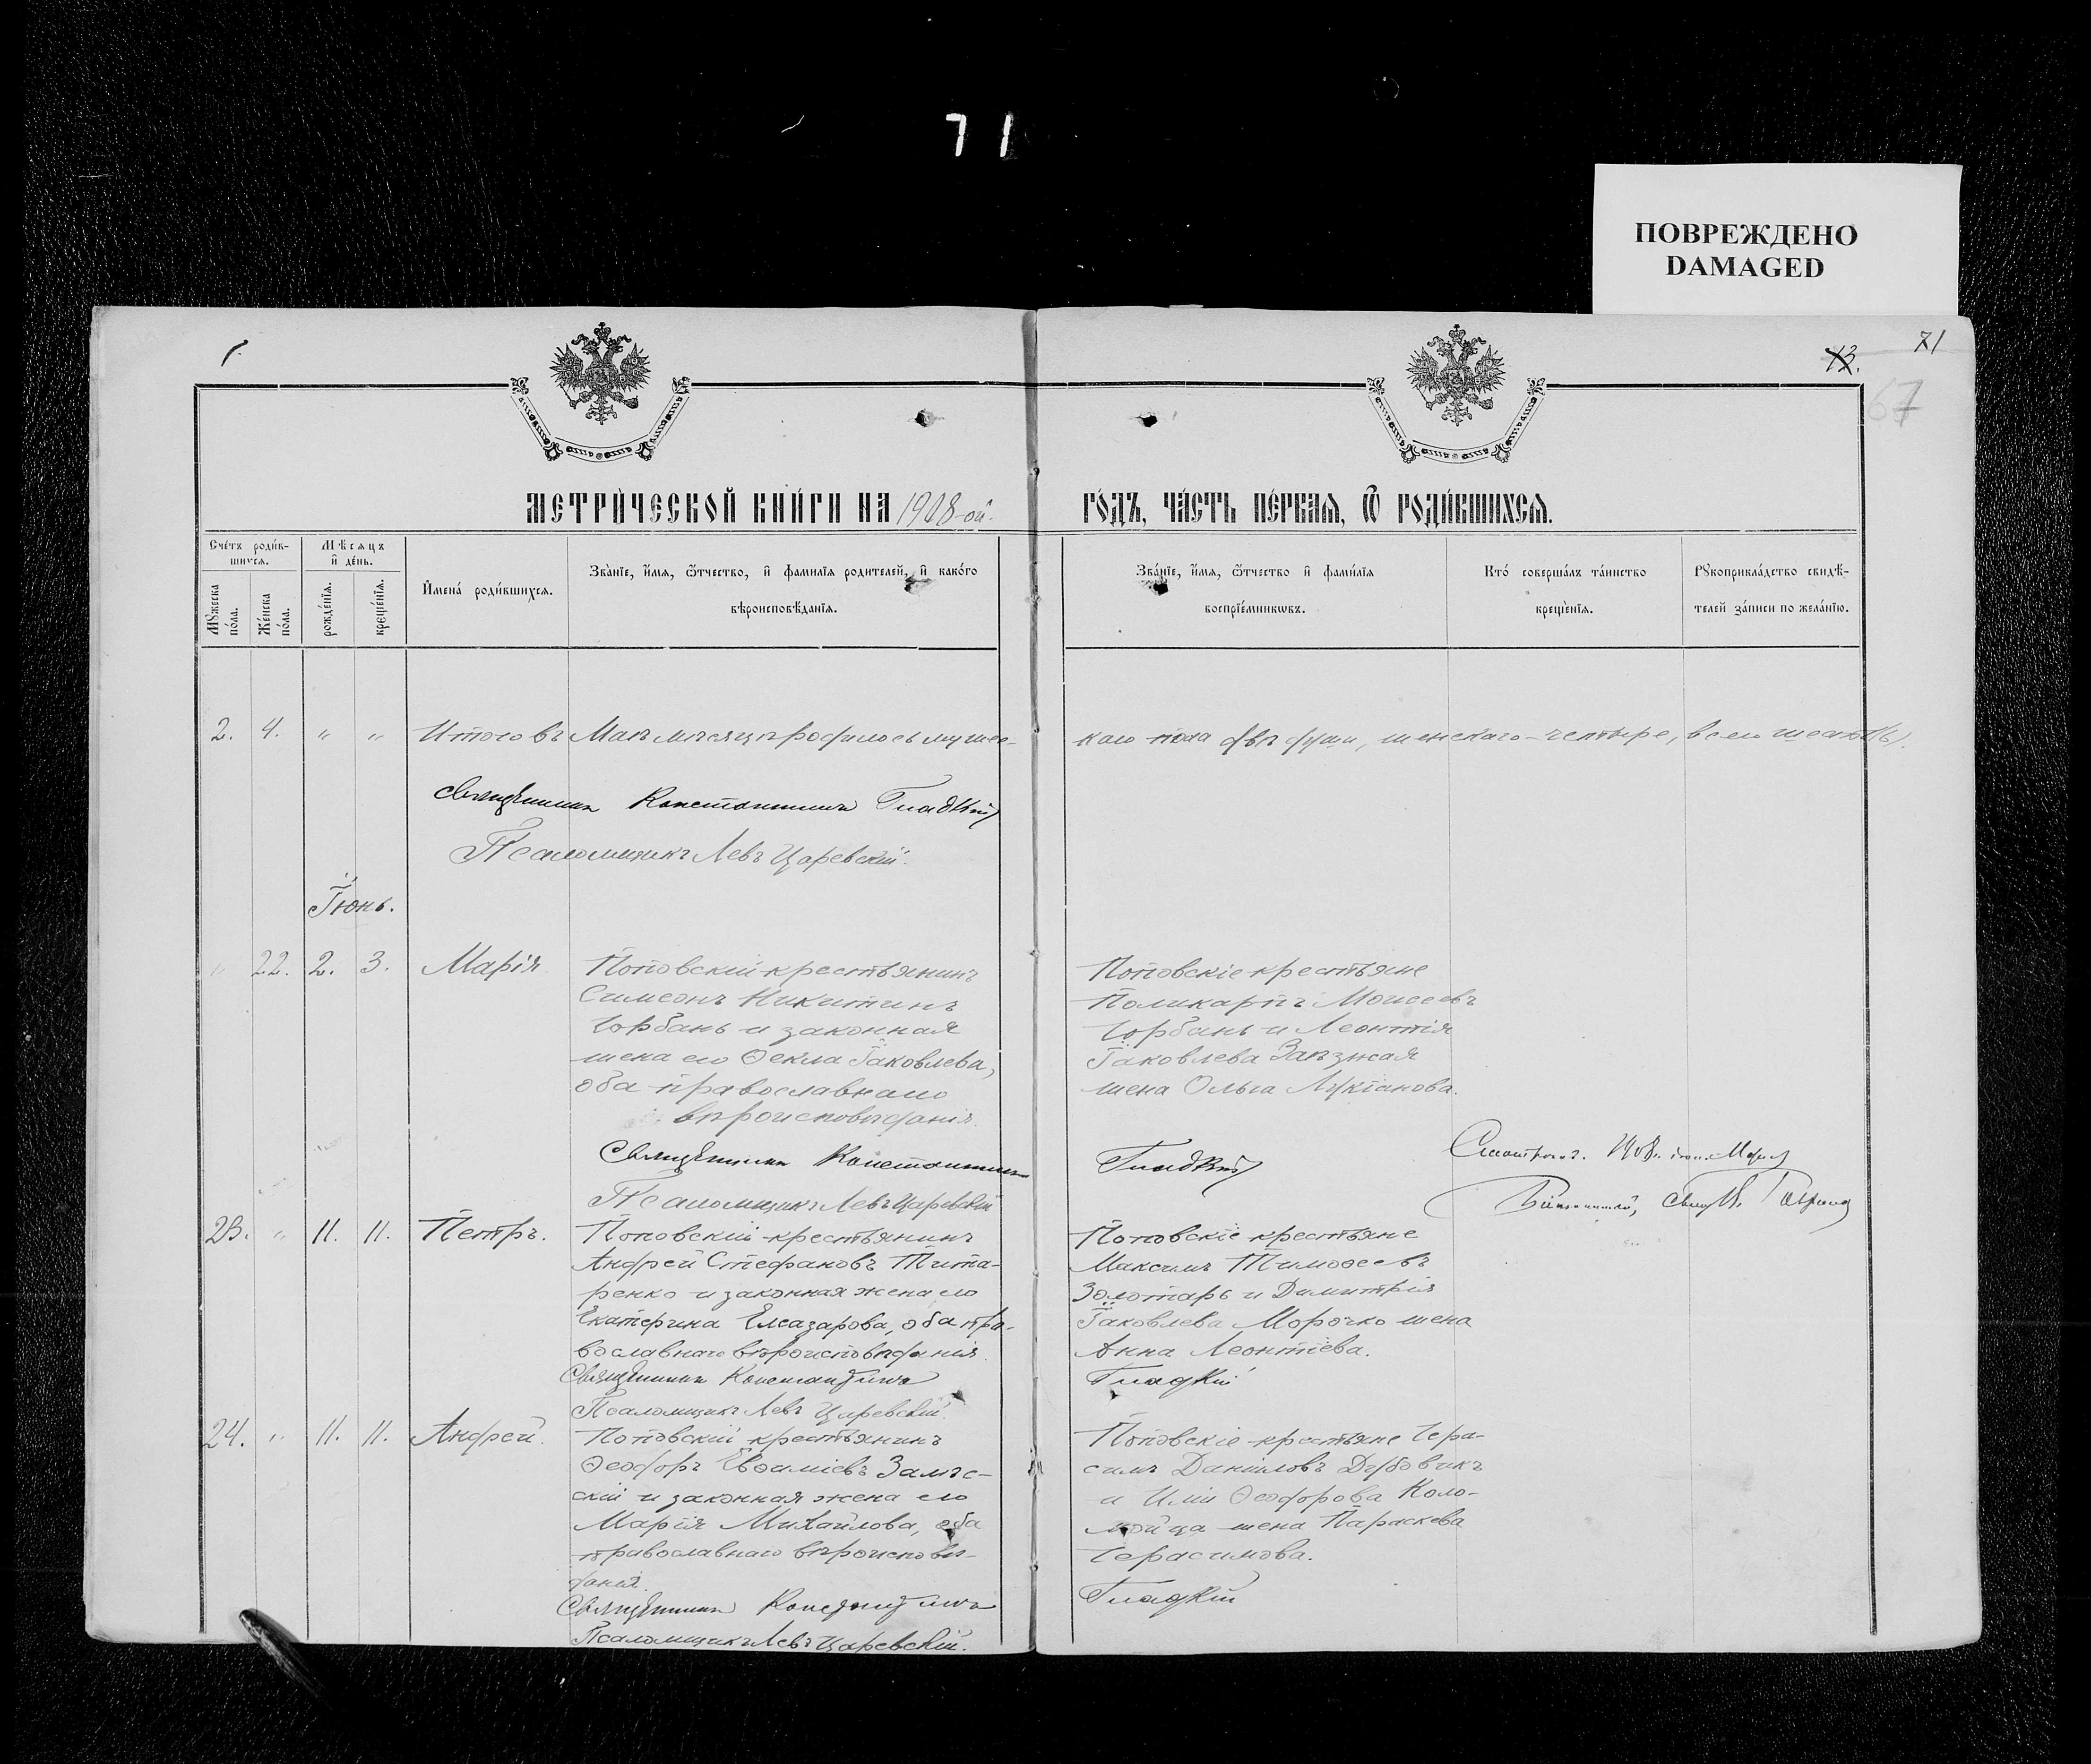 71
ПОВРЕЖДЕНО
DAMAGED
71
13.
67
МЕТРИ́ЧЕСКОЙ КНИ́ГИ НА 1908-ой
ГО́ДЪ, ЧА́СТЬ ПЕ́РВАѦ, Ѿ РОДИ́ВШИХСѦ.
Сче́тъ роди́в-
шихсѧ.
Мѣ́сѧцъ
и҆ де́нь.
Мꙋ́жеска
по́ла.
Же́нска
по́ла.
рожде́нїѧ.
креще́нїѧ.
И҆мена̀ роди́вшихсѧ.
Зва́нїе, и҆́мѧ, ѻ҆́тчество, и҆ фами́лїѧ родителей, и҆ како́гѡ
вѣроисповѣ́данїѧ.
Зва́нїе, и҆́мѧ, ѻ҆́тчество и҆ фами́лїѧ
воспрїе́мникѡвъ.
Кто̀ соверша́лъ та́инство
креще́нїѧ.
Рꙋкоприкла́дство свидѣ́-
телей за́писи по жела́нїю.
2. 4. " " Итого въ Маѣ мѣсяцѣ родилось мужес-
каго пола двѣ души, женскаго - четыре, всего шесть.
Священникъ Константинъ Гладкій
Псаломщикъ Левъ Царевскій.
Іюнь.
" 22. 2. 3. Марія
Поповскій крестьянинъ
Симеонъ Никитинъ
Горбань и законная
жена его Ѳекла Іаковлева,
оба православнаго
вѣроисповѣданія.
Поповскіе крестьяне
Поликарпъ Моисеевъ
Горбань и Леонтія
Іаковлева
жена Ольга Лукіанова.
Священникъ Константинъ
Гладкій
Псаломщикъ Левъ Царевскій
23. " 11. 11. Петръ.
Поповскій крестьянинъ
Андрей Стефановъ Тита-
ренко и законная жена его
Екатерина Елеазарова, оба пра-
вославнаго вѣроисповѣданія.
Поповскіе крестьяне
Максимъ Тимоѳеевъ
Золотарь и Димитрія
Іаковлева Морочко жена
Анна Леонтіева.
Священникъ Константинъ
Гладкій
Псаломщикъ Левъ Царевскій.
24. " 11. 11. Андрей.
Поповскій крестьянинъ
Ѳеодоръ Евѳиміевъ
скій и законная жена его
Марія Михайлова, оба
православнаго вѣроисповѣ-
данія.
Поповскіе крестьяне Гера-
симъ Даніиловъ Дубовикъ
и Иліи Ѳеодорова Коло-
мойца жена Параскева
Герасимова.
Священникъ Константинъ
Гладкій
Псаломщикъ Левъ Царевскій.